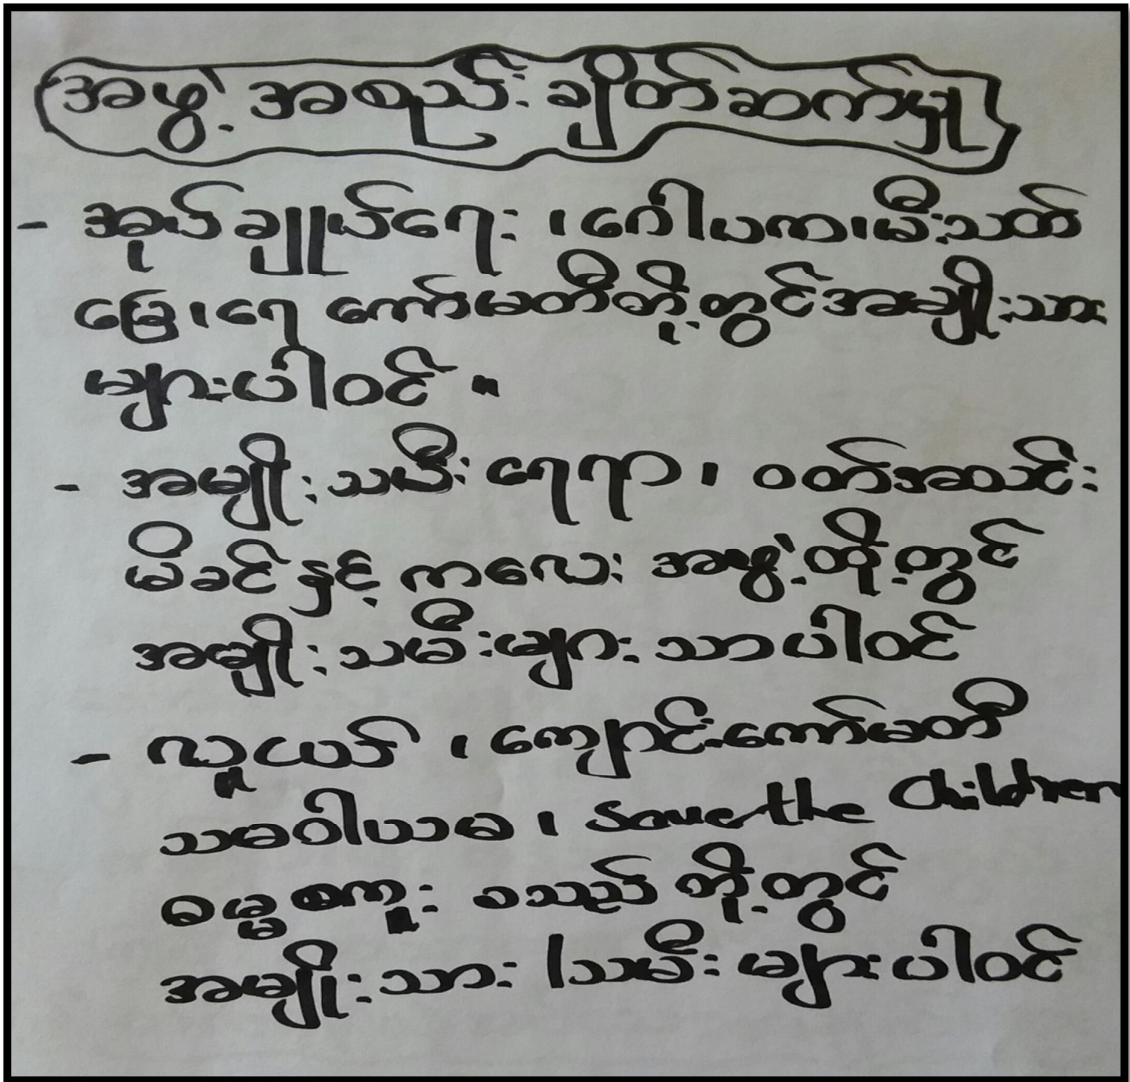 အဖွဲ့ အစည်း ချိတ်ဆက်မှု
- အုပ်ချုပ်ရေး ၊ ဂေါပက ၊ မီးသတ်
မြေ ၊ ရေ ကော်မတီတို့တွင် အမျိုးသား
များပါဝင် ။
- အမျိုးသမီးရေးရာ ၊ ဝတ်အသင်း
မိခင်နှင့် ကလေး အဖွဲ့တို့တွင်
အမျိုးသမီးများ သာပါဝင်
- လူငယ် ၊ ကျောင်းကော်မတီ
သမဝါယမ ၊ Save the Children
ဓမ္မစကူး စသည် တို့တွင်
အမျိုးသား /သမီး များပါဝင်